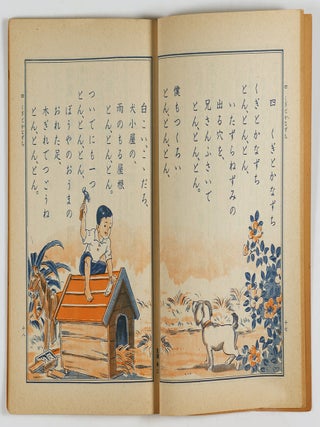 四 くぎとかなずち
くぎとかなずち
とん、とん、とん。
いたずらねずみの
出る穴を、
兄さんふさいで
とん、とん、とん。
僕もつくろい
とん、とん、とん、
白こい、こゝだろ、
犬小屋の、
雨のもる屋根
とん、とん、とん。
ついでにも一つ
とん、とん、とん、
ぼうやのおうまの
おれた足、
木ぎれでつごうね
とん、とん、とん。